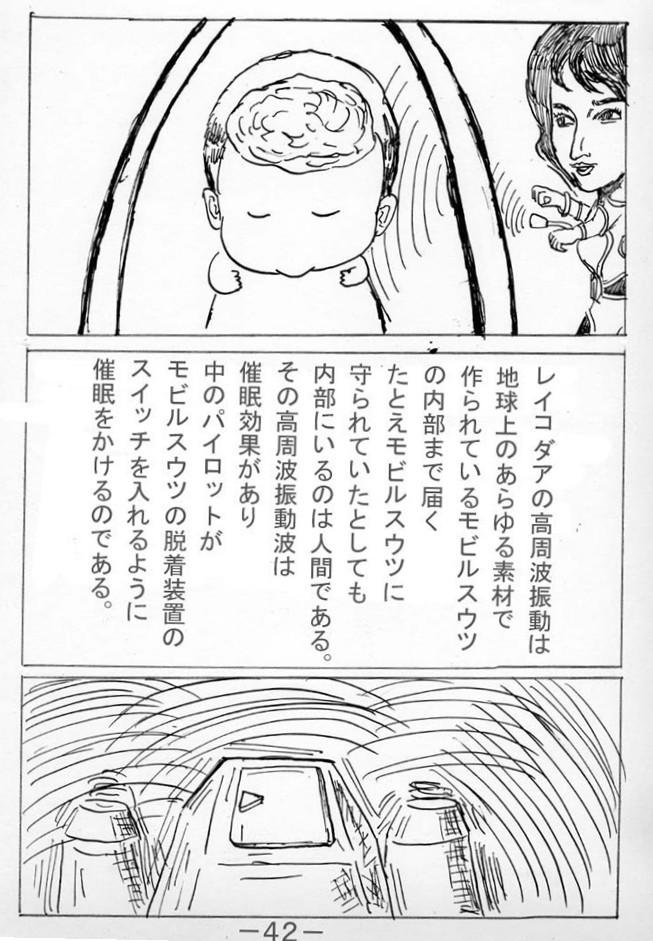 レイコ ダアの高周波振動は
地球上のあらゆる素材で
作られているモビルスウツ
の内部まで届く
たとえモビルスウツに
守られていたとしても
内部にいるのは人間である。
その高周波振動波は
催眠効果があり
中のパイロットが
モビルスウツの脱着装置の
スイッチを入れるように
催眠をかけるのである。
－42－